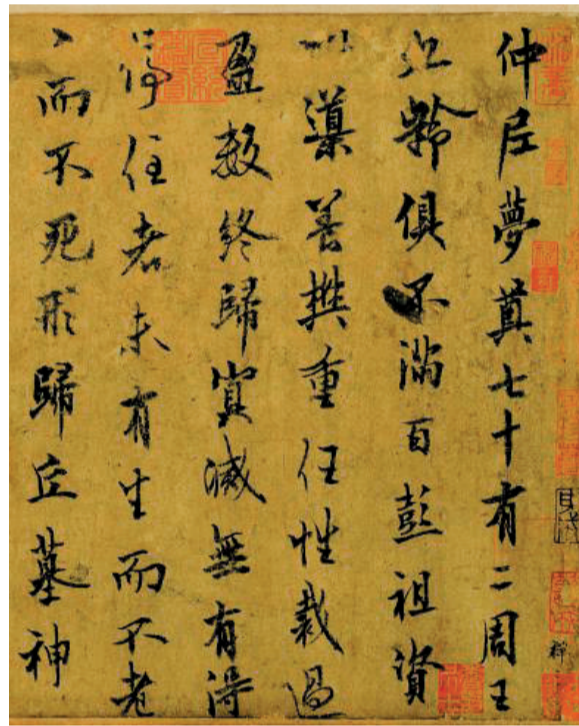 仲尼夢奠七十有二周王
九齡俱不滿百彭祖資
以導養樊重任性裁過
盈數終歸冥滅無有得
停住者未有生而不老
〻而不死形歸丘墓神